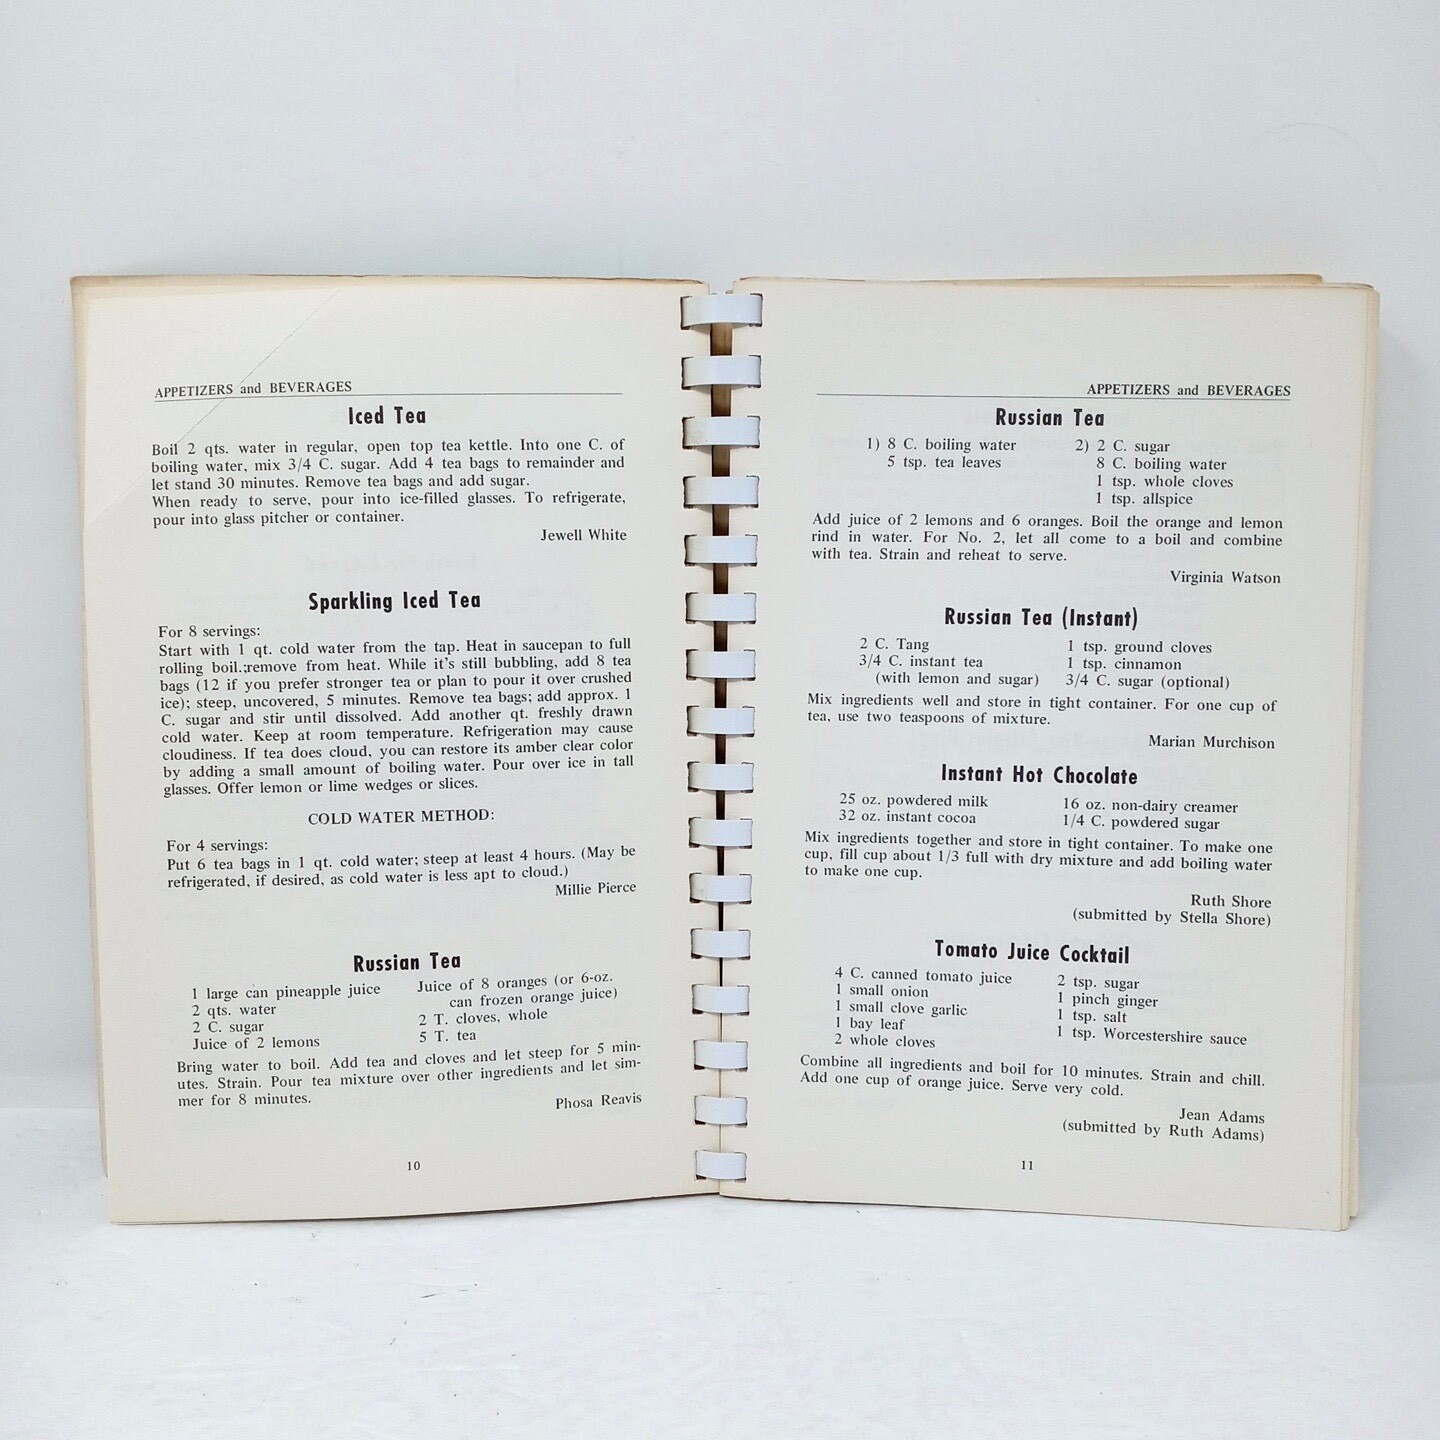 APPETIZERS and BEVERAGES
Iced Tea
Boil 2 qts. water in regular, open top tea kettle. Into one C. of
boiling water, mix 3/4 C. sugar. Add 4 tea bags to remainder and
let stand 30 minutes. Remove tea bags and add sugar.
When ready to serve, pour into ice-filled glasses. To refrigerate,
pour into glass pitcher or container.
Jewell White
Sparkling Iced Tea
For 8 servings:
Start with 1 qt. cold water from the tap. Heat in saucepan to full
rolling boil.;remove from heat. While it's still bubbling, add 8 tea
bags (12 if you prefer stronger tea or plan to pour it over crushed
ice); steep, uncovered, 5 minutes. Remove tea bags; add approx. 1
C. sugar and stir until dissolved. Add another qt. freshly drawn
cold water. Keep at room temperature. Refrigeration may cause
cloudiness. If tea does cloud, you can restore its amber clear color
by adding a small amount of boiling water. Pour over ice in tall
glasses. Offer lemon or lime wedges or slices.
COLD WATER METHOD:
For 4 servings:
Put 6 tea bags in 1 qt. cold water; steep at least 4 hours. (May be
refrigerated, if desired, as cold water is less apt to cloud.)
Millie Pierce
Russian Tea
1 large can pineapple juice
2 qts. water
2 C. sugar
Juice of 2 lemons
Juice of 8 oranges (or 6-oz.
can frozen orange juice)
2 T. cloves, whole
5 T. tea
Bring water to boil. Add tea and cloves and let steep for 5 min-
utes. Strain. Pour tea mixture over other ingredients and let sim-
mer for 8 minutes.
Phosa Reavis
10
APPETIZERS and BEVERAGES
Russian Tea
1) 8 C. boiling water
5 tsp. tea leaves
2) 2 C. sugar
8 C. boiling water
1 tsp. whole cloves
1 tsp. allspice
Add juice of 2 lemons and 6 oranges. Boil the orange and lemon
rind in water. For No. 2, let all come to a boil and combine
with tea. Strain and reheat to serve.
Virginia Watson
Russian Tea (Instant)
2 C. Tang
3/4 C. instant tea
(with lemon and sugar)
1 tsp. ground cloves
1 tsp. cinnamon
3/4 C. sugar (optional)
Mix ingredients well and store in tight container. For one cup of
tea, use two teaspoons of mixture.
Marian Murchison
Instant Hot Chocolate
25 oz. powdered milk
32 oz. instant cocoa
16 oz. non-dairy creamer
1/4 C. powdered sugar
Mix ingredients together and store in tight container. To make one
cup, fill cup about 1/3 full with dry mixture and add boiling water
to make one cup.
Ruth Shore
(submitted by Stella Shore)
Tomato Juice Cocktail
4 C. canned tomato juice
1 small onion
1 small clove garlic
1 bay leaf
2 whole cloves
2 tsp. sugar
1 pinch ginger
1 tsp. salt
1 tsp. Worcestershire sauce
Combine all ingredients and boil for 10 minutes. Strain and chill.
Add one cup of orange juice. Serve very cold.
Jean Adams
(submitted by Ruth Adams)
11